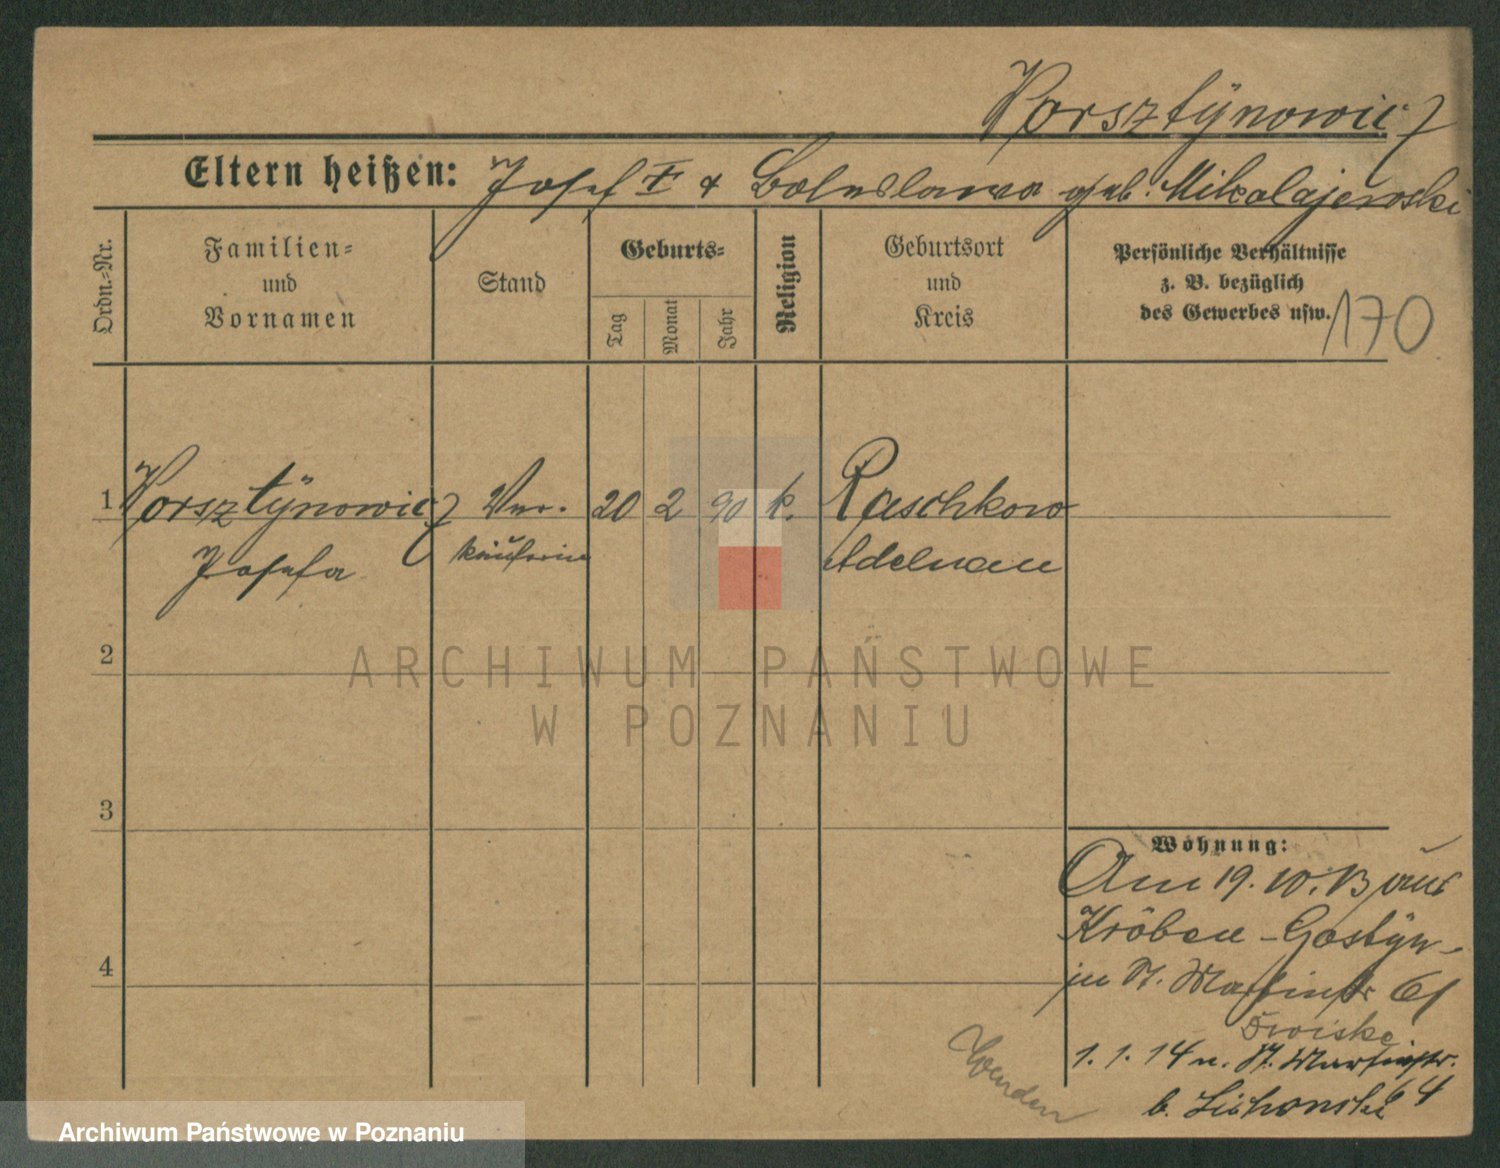 Worsztynowicz
Eltern heißen: Josef † & Boleslawa geb. Mikolajewski
Ordn.-Nr.
Familien-
und
Vornamen
Stand
Geburts-
Tag
Monat
Jahr
Religion
Geburtsort
und
Kreis
Persönliche Verhältnisse
z. B. bezüglich
des Gewerbes usw.
170
1 Worsztynowicz Ver- 20 2 90 k. Raschkow
Josefa käuferin Adelnau
2
ARCHIWUM PAŃSTWOWE
W POZNANIU
3
4
Wohnung:
Am 19. 10. 13 aus
Kröben - Gostyn
in St. Martinstr 61
1. 1. 14 n. St. Martinstr.
64
b.
Wenden
Archiwum Państwowe w Poznaniu